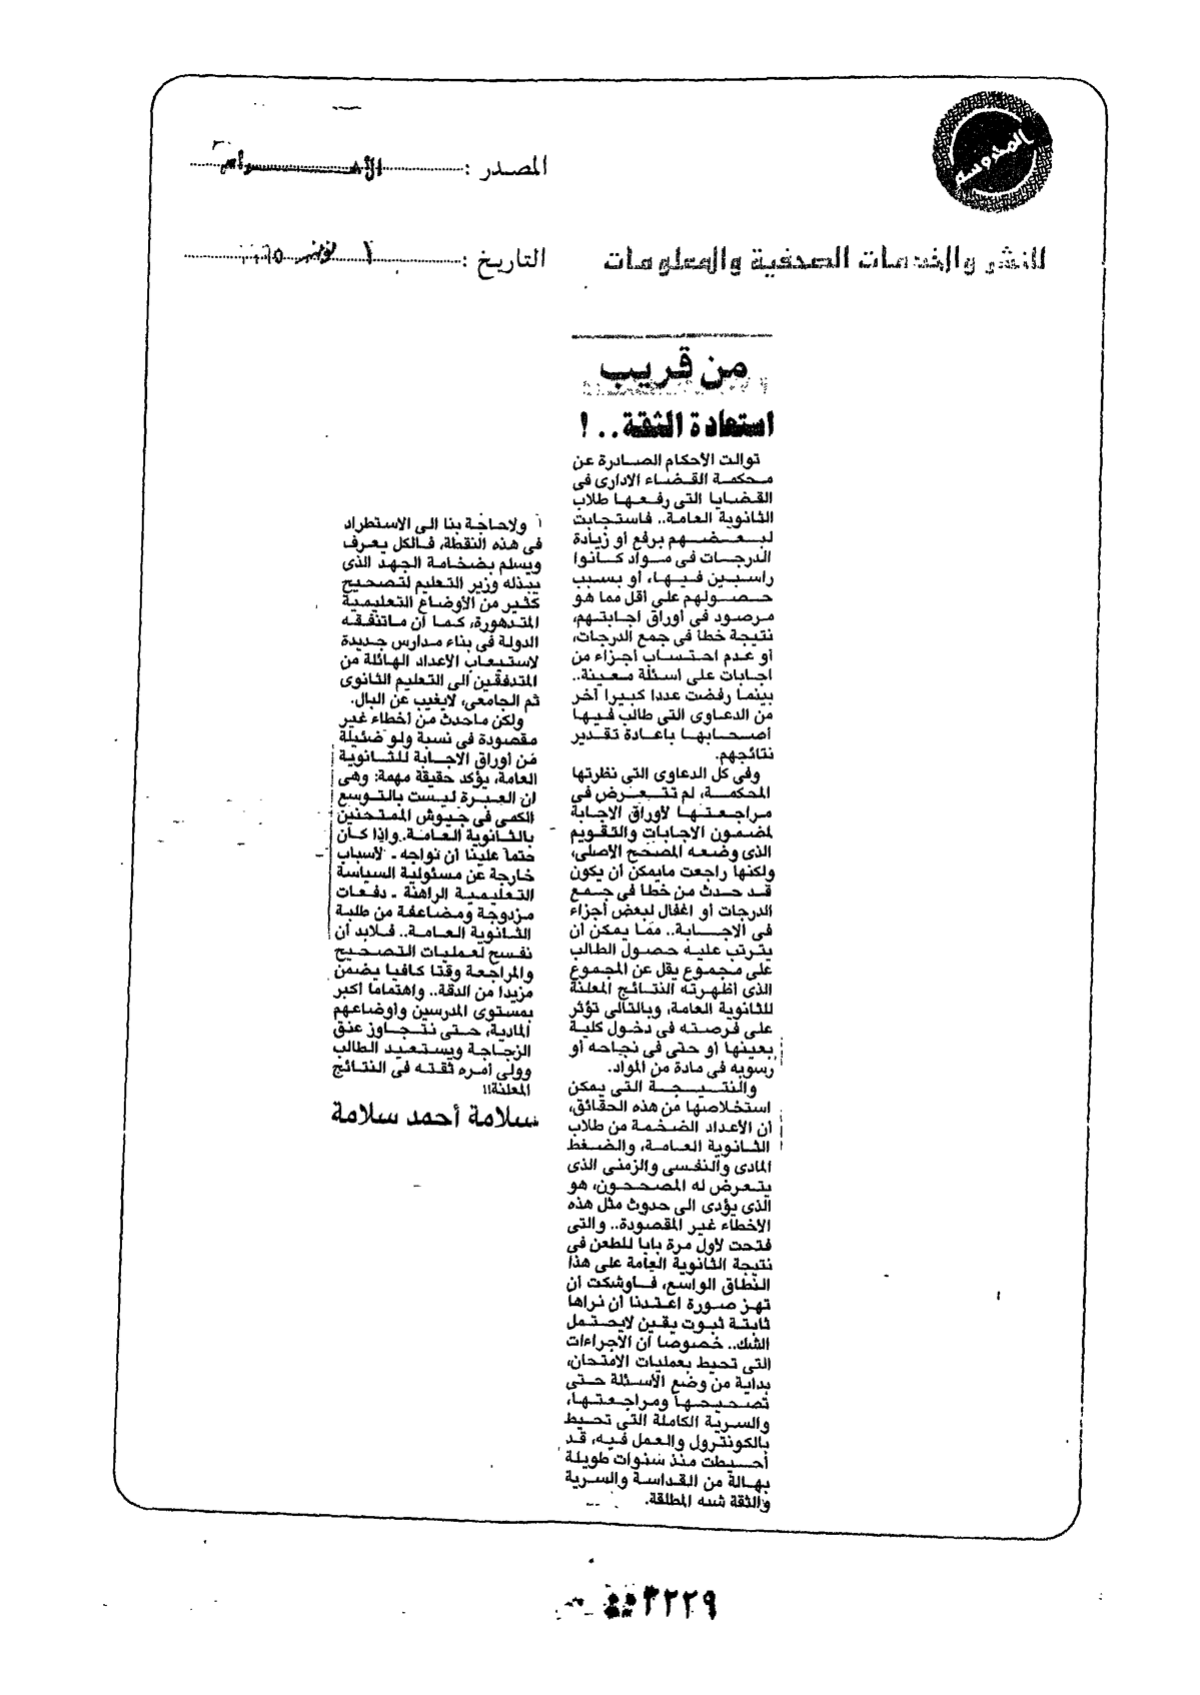 المدوسة
للنشر والخدمات الصحفية والمعلومات
المصدر :
التاريخ :
من قريب
استعادة الثقة . . !
توالت الأحكام الصادرة عن
محكمة القضاء الادارى فى
القضايا التى رفعها طلاب
الثانوية العامة.. فاستجابت
لبعضهم برفع أو زيادة
الدرجات فى مواد كانوا
راسبين فيها، أو بسبب
حصولهم على أقل مما هو
مرصود فى أوراق اجابتهم،
نتيجة خطا فى جمع الدرجات،
أو عدم احتساب أجزاء من
اجابات على اسئلة معينة..
بينما رفضت عددا كبيرا آخر
من الدعاوى التى طالب فيها
أصحابها باعادة تقدير
نتائجهم.
وفى كل الدعاوى التى نظرتها
المحكمة، لم تتعرض فى
مراجعتها لأوراق الاجابة
لمضمون الاجابات والتقويم
الذى وضعه المصحح الأصلى،
ولكنها راجعت مايمكن أن يكون
قد حدث من خطا فى جمع
الدرجات أو اغفال لبعض أجزاء
فى الاجابة.. مما يمكن أن
يترتب عليه حصول الطالب
على مجموع يقل عن المجموع
الذى أظهرته النتائج المعلنة
للثانوية العامة، وبالتالى تؤثر
على فرصته فى دخول كلية
بعينها أو حتى فى نجاحه أو
رسوبه فى مادة من المواد.
والنتيجة التى يمكن
استخلاصها من هذه الحقائق،
أن الأعداد الضخمة من طلاب
الثانوية العامة، والضغط
المادى والنفسى والزمنى الذى
يتعرض له المصححون، هو
الذى يؤدى الى حدوث مثل هذه
الأخطاء غير المقصودة.. والتى
فتحت لأول مرة بابا للطعن فى
نتيجة الثانوية العامة على هذا
النطاق الواسع، فاوشكت أن
تهز صورة اعتدنا أن نراها
ثابتة ثبوت يقين لايحتمل
الشك.. خصوصا أن الاجراءات
التى تحيط بعمليات الامتحان،
بداية من وضع الأسئلة حتى
تصحيحها ومراجعتها،
والسرية الكاملة التى تحيط
بالكونترول والعمل فيه، قد
أحيطت منذ سنوات طويلة
بهالة من القداسة والسرية
والثقة شبه المطلقة.
ولاحاجة بنا الى الاستطراد
فى هذه النقطة، فالكل يعرف
ويسلم بضخامة الجهد الذى
يبذله وزير التعليم لتصحيح
كثير من الأوضاع التعليمية
المتدهورة، كما أن ماتنفقه
الدولة فى بناء مدارس جديدة
لاستيعاب الأعداد الهائلة من
المتدفقين الى التعليم الثانوى
ثم الجامعى، لايغيب عن البال.
ولكن ماحدث من أخطاء غير
مقصودة فى نسبة ولو ضئيلة
من أوراق الاجابة للثانوية
العامة، يؤكد حقيقة مهمة: وهى
ان العبرة ليست بالتوسع
الكمى فى جيوش الممتحنين
بالثانوية العامة. واذا كان
حتما علينا أن نواجه - لأسباب
خارجة عن مسئولية السياسة
التعليمية الراهنة - دفعات
مزدوجة ومضاعفة من طلبة
الثانوية العامة.. فلابد أن
نفسح لعمليات التصحيح
والمراجعة وقتا كافيا يضمن
مزيدا من الدقة.. واهتماما أكبر
بمستوى المدرسين وأوضاعهم
المادية، حتى نتجاوز عنق
الزجاجة ويستعيد الطالب
وولى أمره ثقته فى النتائج
المعلنة!!
سلامة أحمد سلامة